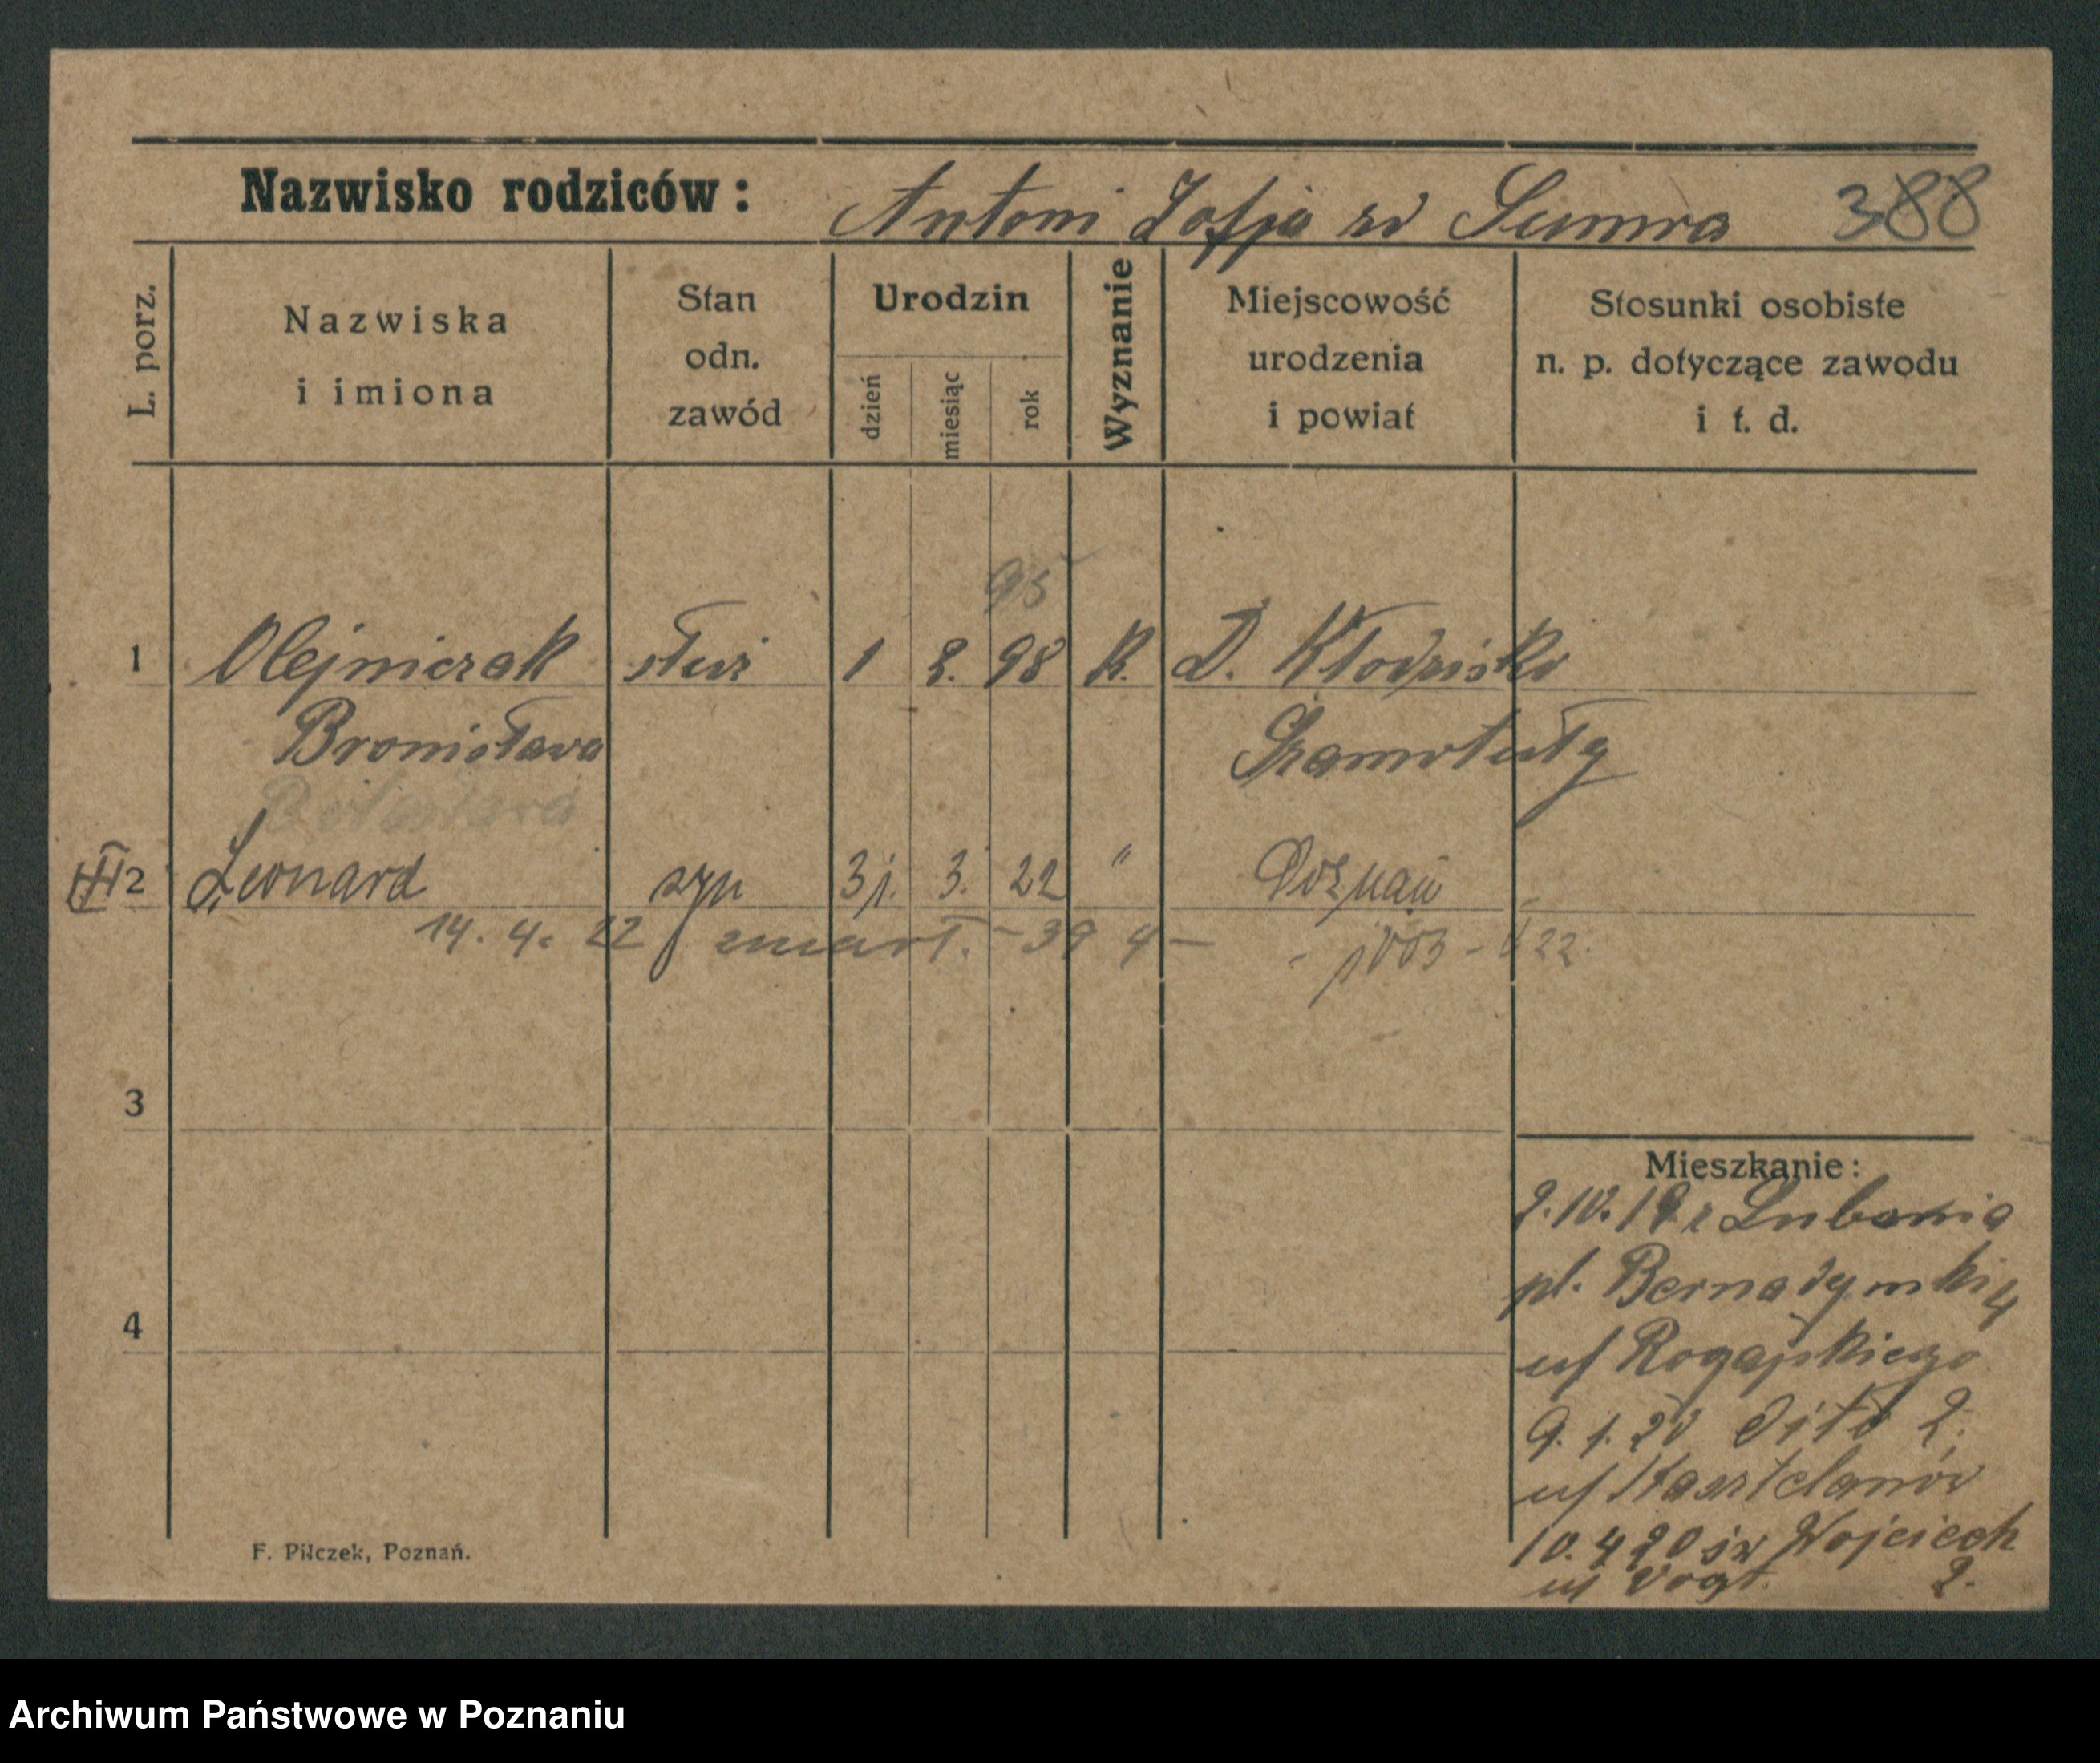 Nazwisko rodziców: Antoni Zofja zd Sumra 388
L. porz.
Nazwiska
i imiona
Stan
odn.
zawód
Urodzin
dzień
miesiąc
rok
Wyznanie
Miejscowość
urodzenia
i powiat
Stosunki osobiste
n. p. dotyczące zawodu
i t. d.
95
1 Olejniczak służ 1 2. 98 K. D. Kłodzisko
Bronisława Szamotuły
2 Leonard syn 31. 3. 22 " Poznań
14. 4. 22 zmarł. - 39 4 -
3
Mieszkanie:
2.10.19 z Lubonia
pl. Bernadyński 4
4
u/ Rogajskiego
9. 1. 20 dito 2;
u/ Kasztelanów
10. 4 20 św Wojciech
u/ Vogt. 2.
F. Pilczek, Poznań.
Archiwum Państwowe w Poznaniu